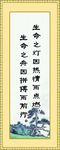 生命之灯因热情而点燃
生命之舟因拼搏而前行